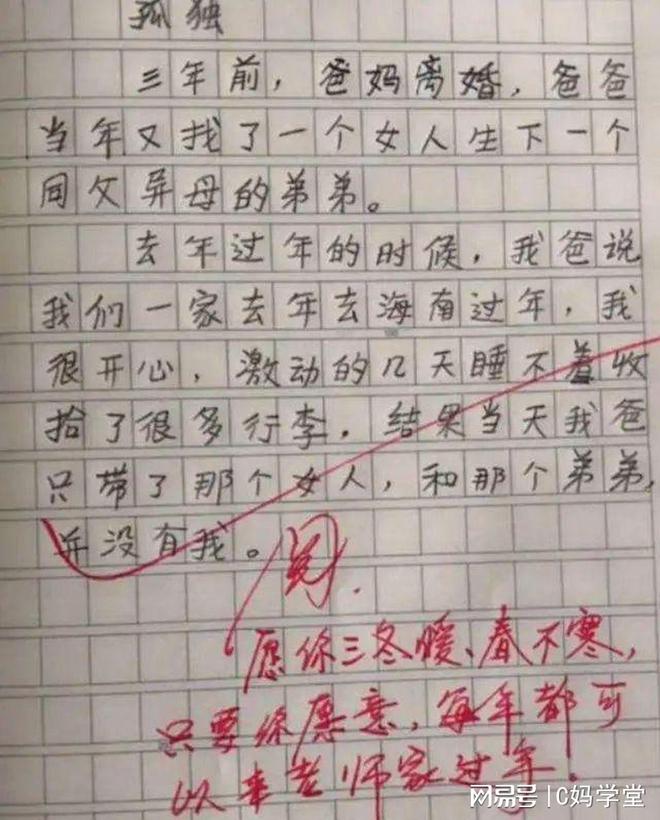 孤独
三年前，爸妈离婚，爸爸
当年又找了一个女人生下一个
同父异母的弟弟。
去年过年的时候，我爸说
我们一家去年去海南过年，我
很开心，激动的几天睡不着收
拾了很多行李，结果当天我爸
只带了那个女人，和那个弟弟，
并没有我。
阅.
愿你三冬暖、春不寒，
只要你愿意，每年都可
以来老师家过年！
网易号|C妈学堂